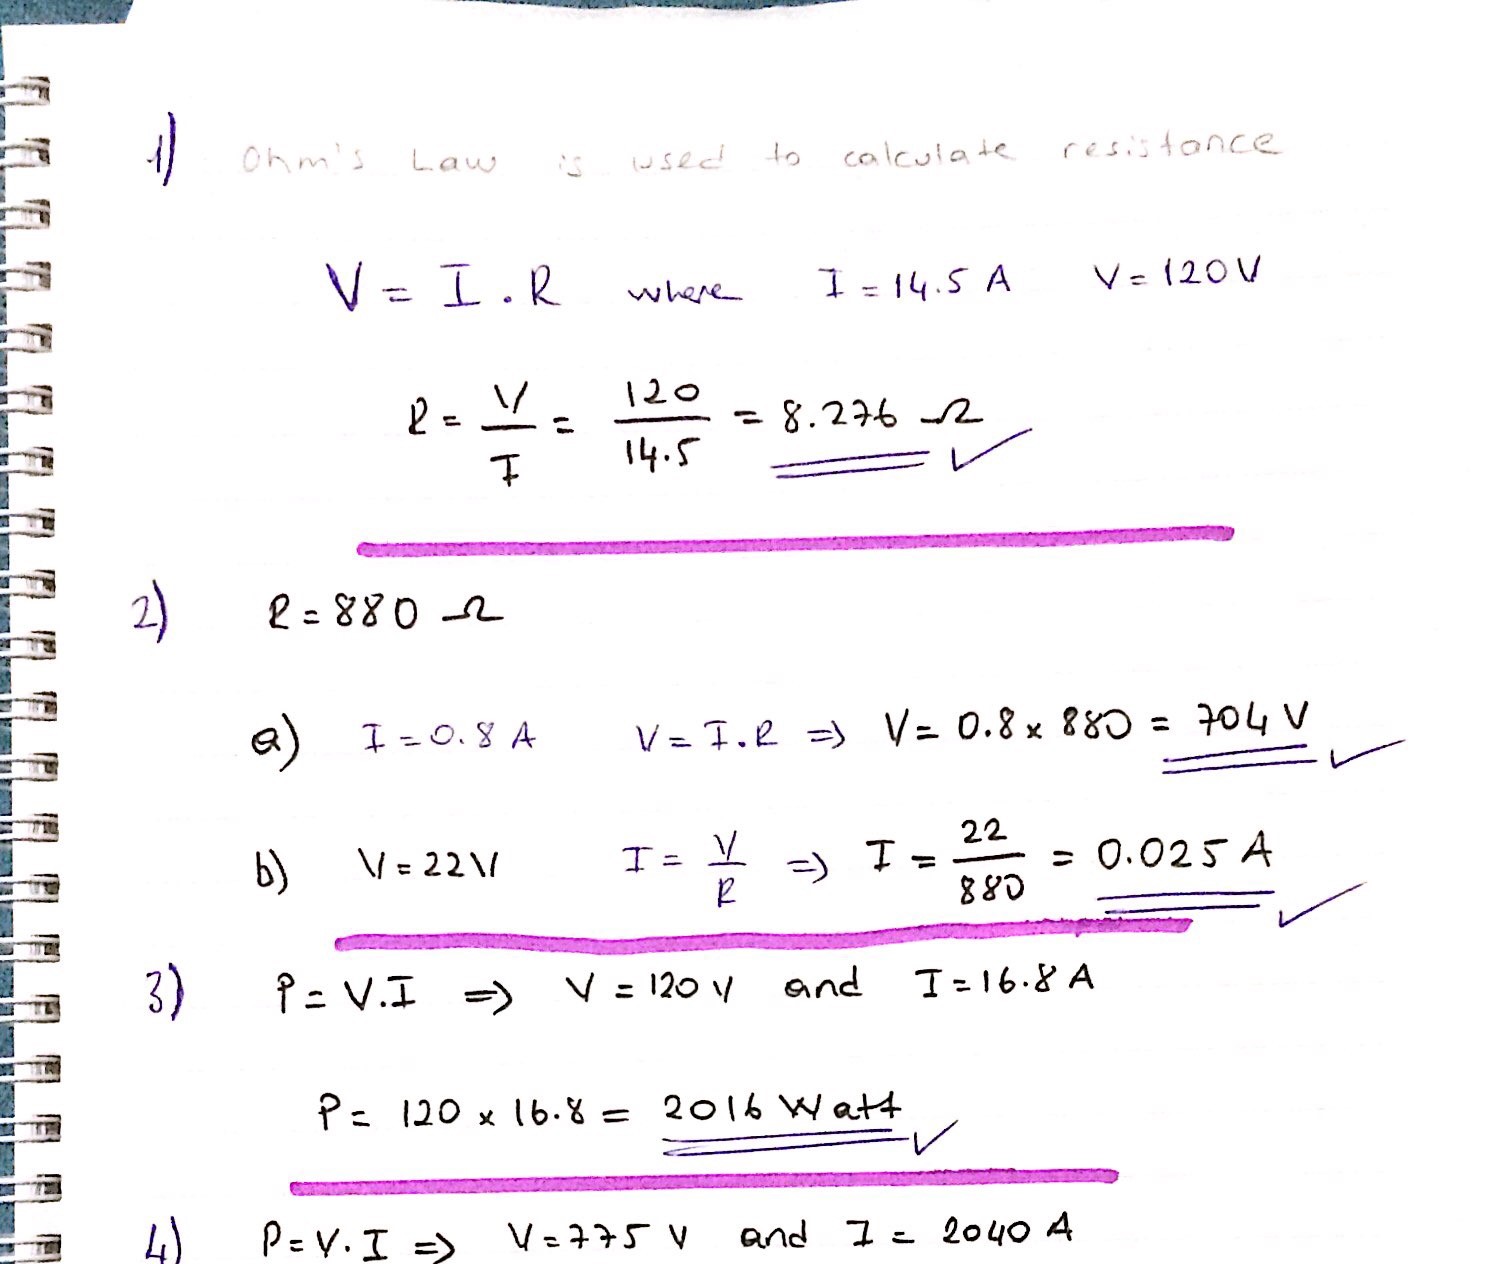 1) Ohm's Law is used to calculate resistance
V = I . R where I = 14.5 A V = 120 V
R = V/I = 120/14.5 = 8.276 Ω ✓
2) R = 880 Ω
a) I = 0.8 A V = I . R ⇒ V = 0.8 x 880 = 704 V ✓
b) V = 22 V I = V/R ⇒ I = 22/880 = 0.025 A ✓
3) P = V . I ⇒ V = 120 V and I = 16.8 A
P = 120 x 16.8 = 2016 Watt ✓
4) P = V . I ⇒ V = 775 V and I = 2040 A